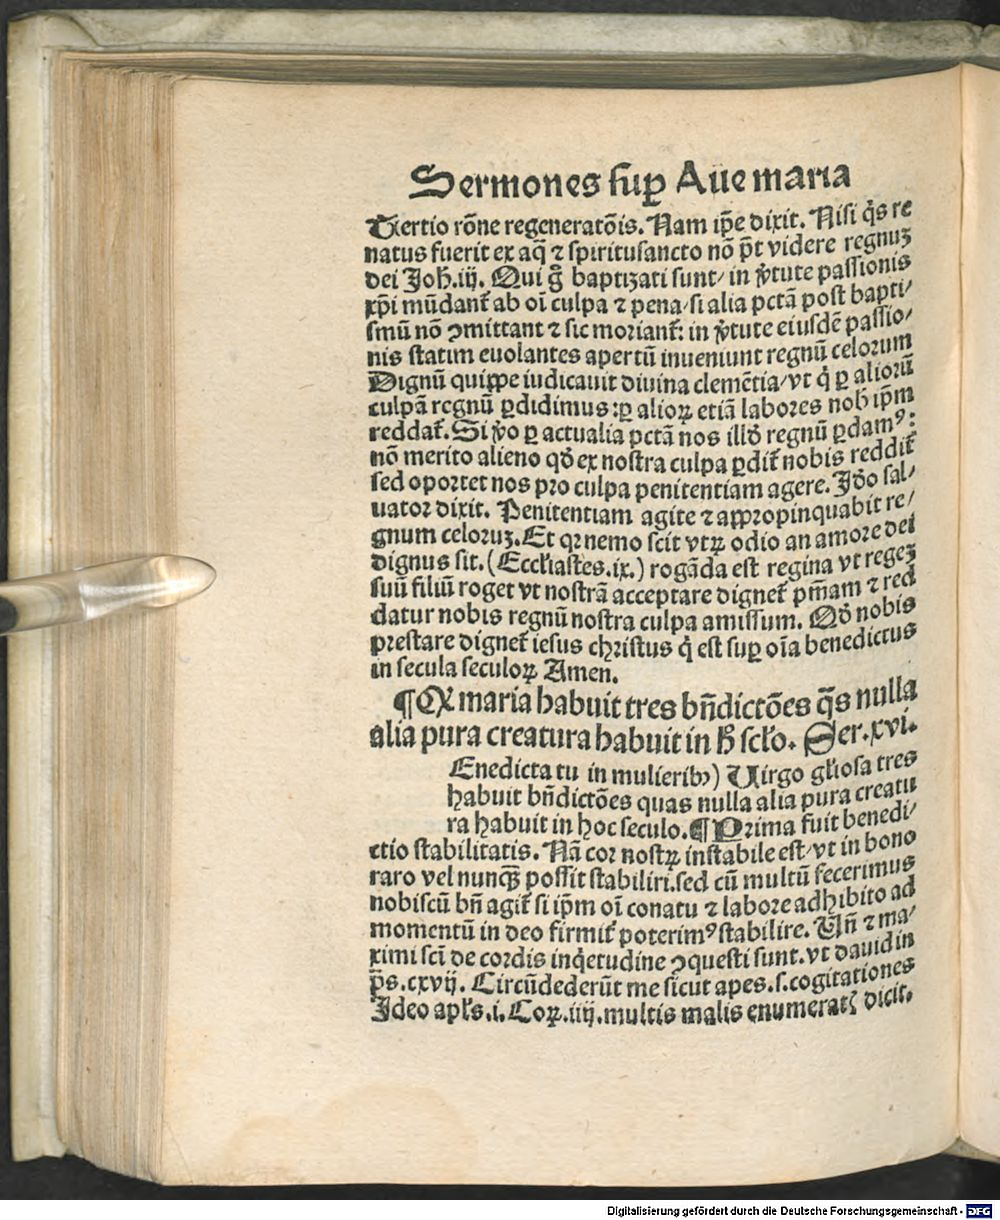 Sermones suꝑ Aue maria
Tertio rōne regeneratōis. Nam ip̄e dixit. Nisi q̇s re
natus fuerit ex aq̄ ⁊ spiritusancto nō pt̄ videre regnuꝫ
dei Joh̄.iij. Qui g̊ baptizati sunt/ in v̓tute passionis
xp̄i mūdant᷑ ab oī culpa ⁊ pena/si alia pctā post bapti/
smū nō ꝯmittant ⁊ sic moriant᷑: in v̓tute eiusdē passio/
nis statim euolantes apertū inueniunt regnū celorum
Dignū quippe iudicauit diuina clemētia/vt q̇ ꝑ aliorū
culpā regnū ꝑdidimus:ꝑ alioꝝ etiā labores nob̄ ip̄m
reddat᷑. Si v̓o ꝑ actualia pctā nos illd̓ regnū ꝑdamꝰ:
nō merito alieno qd̓ ex nostra culpa ꝑdit᷑ nobis reddit᷑
sed oportet nos pro culpa penitentiam agere. Jdo̓ sal/
uator dixit. Penitentiam agite ⁊ appropinquabit re/
gnum celoruꝫ. Et qꝛ nemo scit vtꝝ odio an amore dei
dignus sit. (Eccl̓iastes.ix.) rogāda est regina vt regeꝫ
suū filiū roget vt nostrā acceptare dignet᷑ pn̄iam ⁊ red
datur nobis regnū nostra culpa amissum. Qd̓ nobis
prestare dignet᷑ iesus christus q̇ est suꝑ oīa benedictus
in secula seculoꝝ Amen.
¶ Qꝙ maria habuit tres bn̄dictōes q̄s nulla
alia pura creatura habuit in h̄ scl̓o. Ser.xvi.
Enedicta tu in mulieribꝰ) Uirgo gl̓iosa tres
habuit bn̄dictōes quas nulla alia pura creatu
ra habuit in hoc seculo. ¶ Prima fuit benedi/
ctio stabilitatis. Nā cor nostꝝ instabile est/vt in bono
raro vel nunqꝫ possit stabiliri.sed cū multū fecerimus
nobiscū bn̄ agit᷑ si ip̄m oī conatu ⁊ labore adhibito ad
momentū in deo firmit᷑ poterimꝰ stabilire. Un̄ ⁊ ma/
ximi sci̅ de cordis inq̇etudine ꝯquesti sunt.vt dauid in
p̄s.cxvij. Circūdederūt me sicut apes.s.cogitationes
Jdeo apl̓s.i.Coꝝ.iiij.multis malis enumeratꝭ dicit.
Digitalisierung gefördert durch die Deutsche Forschungsgemeinschaft - DFG